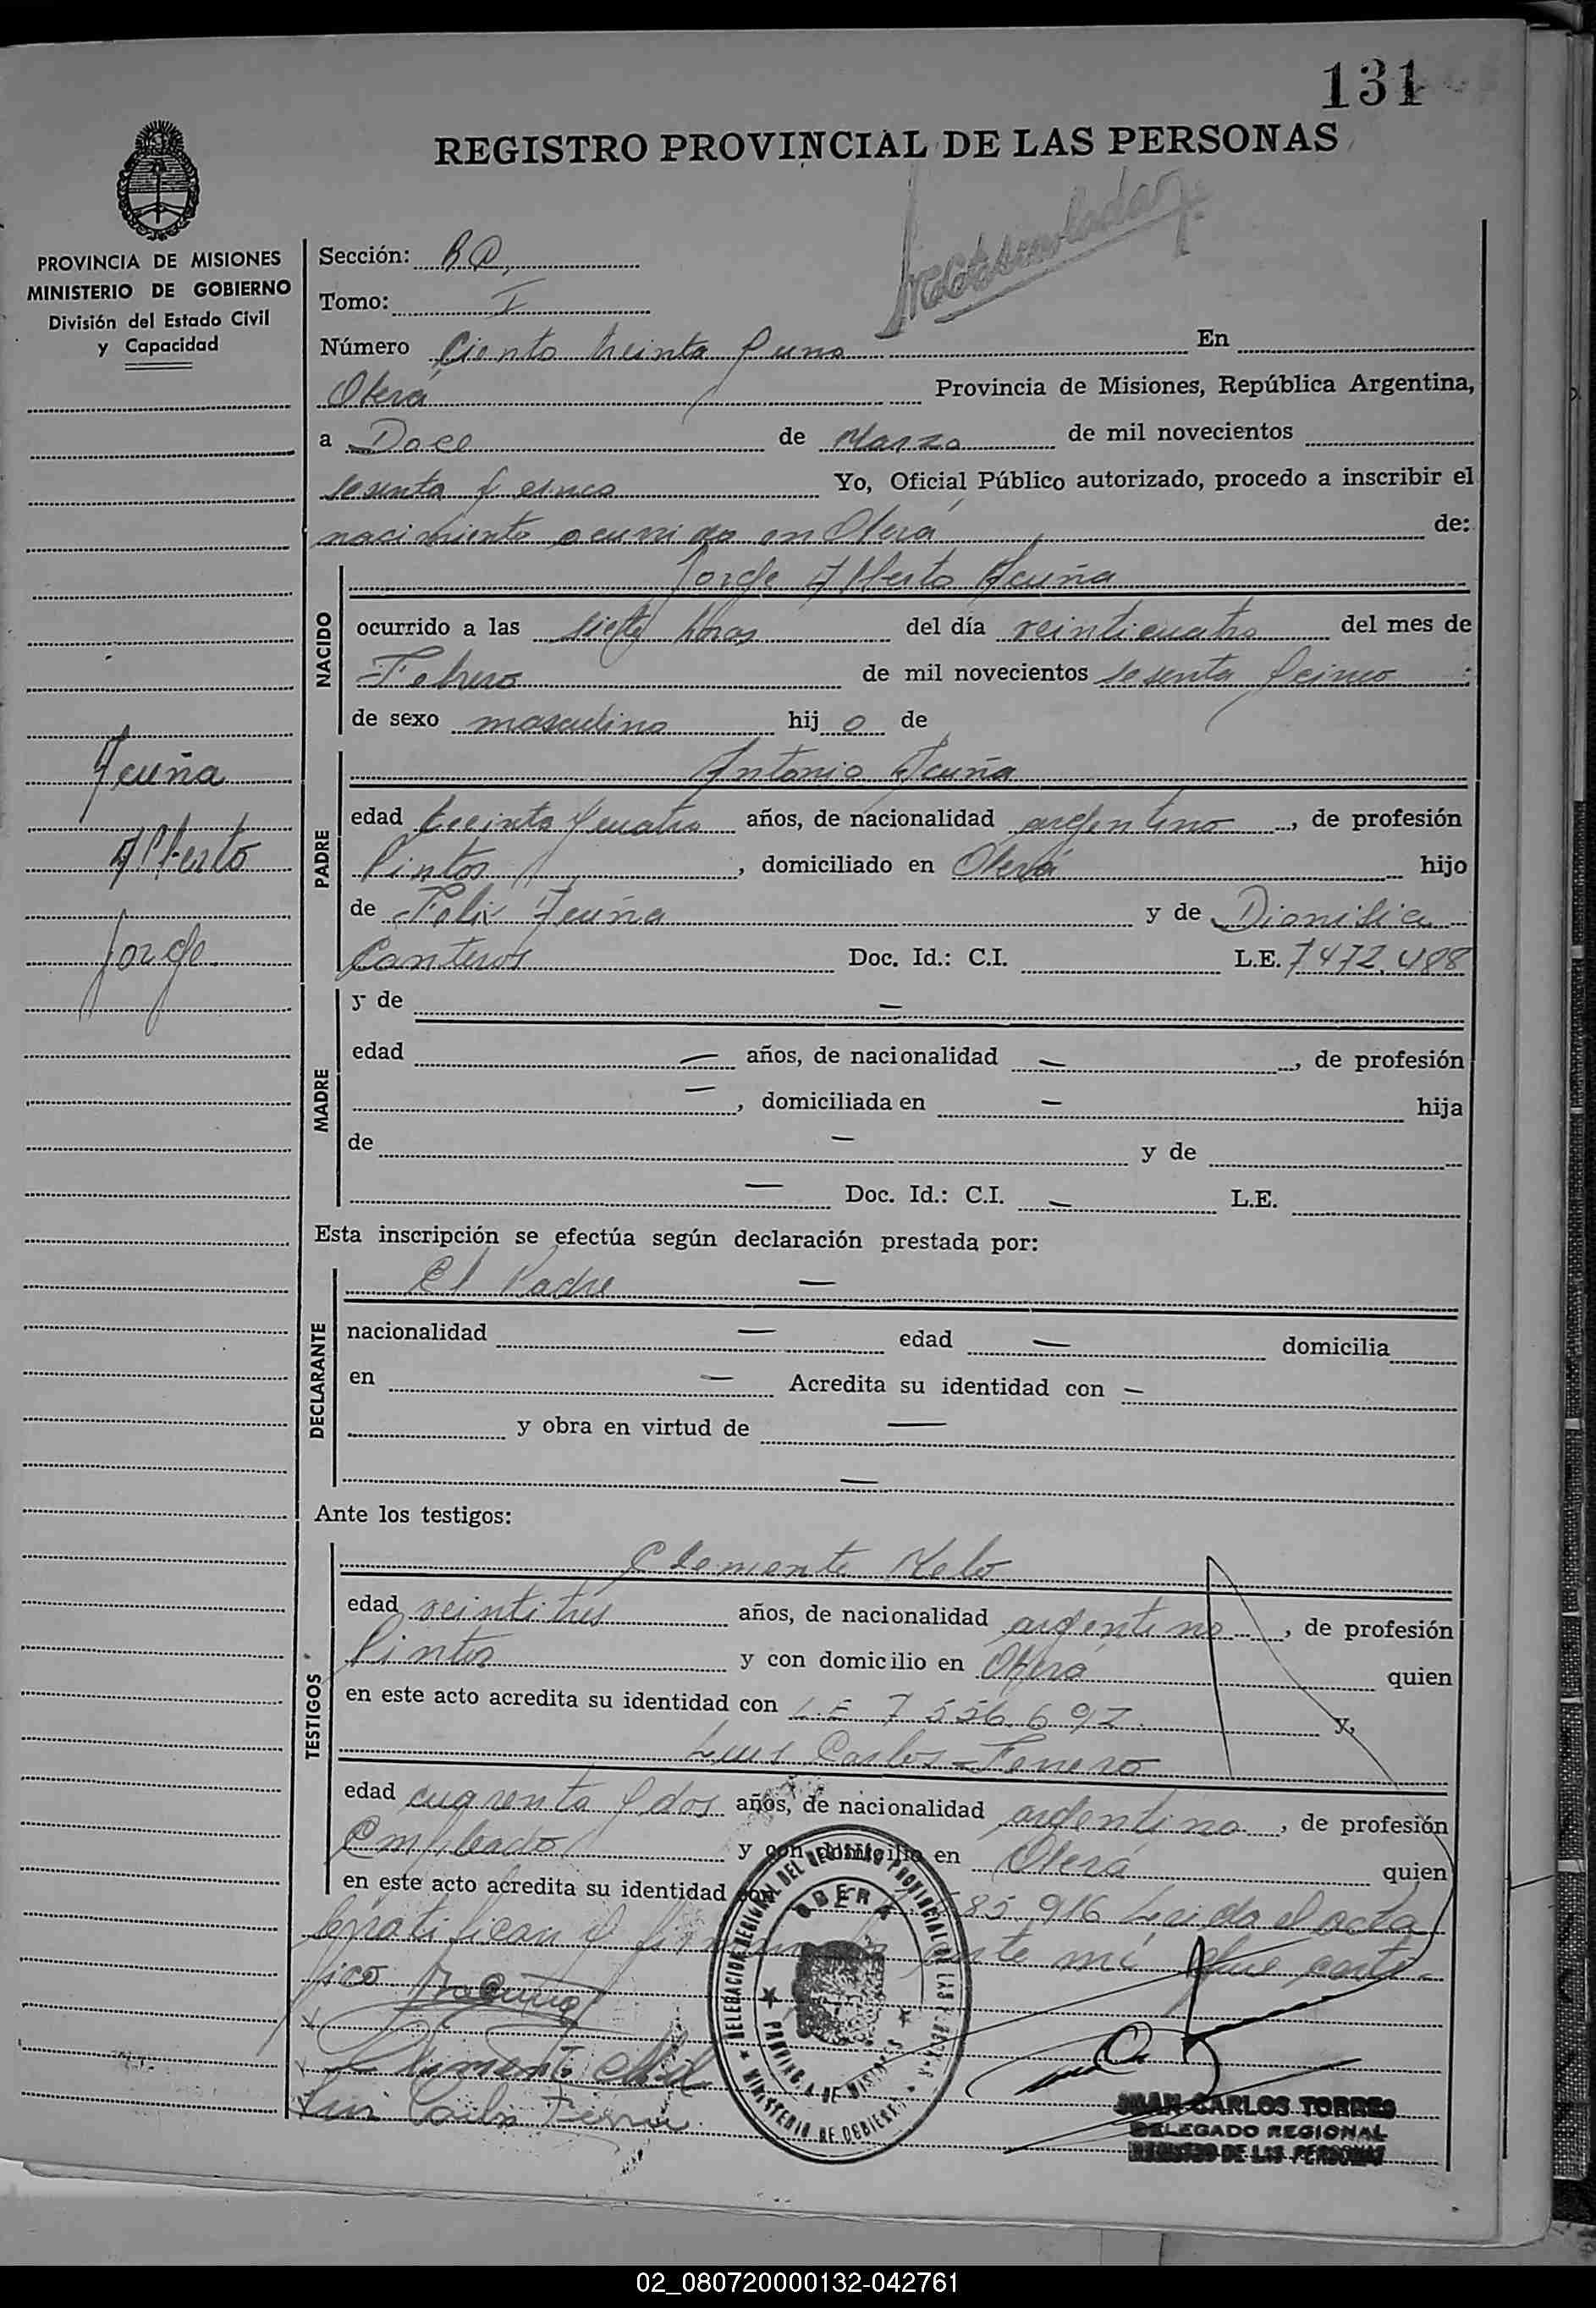 131
REGISTRO PROVINCIAL DE LAS PERSONAS
PROVINCIA DE MISIONES
MINISTERIO DE GOBIERNO
División del Estado Civil
y Capacidad
Sección:
Tomo: I
Número Ciento treinta y uno En
Oberá Provincia de Misiones, República Argentina,
a Doce de Marzo de mil novecientos
sesenta y cinco Yo, Oficial Público autorizado, procedo a inscribir el
nacimiento ocurrido en Oberá de:
NACIDO
Jorge Alberto Acuña
ocurrido a las siete horas del día veinticuatro del mes de
Febrero de mil novecientos sesenta y cinco
de sexo masculino hijo de
Acuña
Alberto
Jorge
PADRE
Antonio Acuña
edad treinta y cuatro años, de nacionalidad argentino, de profesión
Pintor, domiciliado en Oberá hijo
de Felix Acuña y de Dionisia
Canteros Doc. Id.: C.I. L.E. 7472.488
MADRE
y de —
edad — años, de nacionalidad —, de profesión
—, domiciliada en — hija
de — y de
— Doc. Id.: C.I. — L.E.
Esta inscripción se efectúa según declaración prestada por:
DECLARANTE
El Padre —
nacionalidad — edad — domicilia
en — Acredita su identidad con —
y obra en virtud de —
—
Ante los testigos:
TESTIGOS
Clemente Melo
edad veintitrés años, de nacionalidad argentino, de profesión
Pintor y con domicilio en Oberá quien
en este acto acredita su identidad con L.E 7.556.692. y,
Luis Carlos
edad cuarenta y dos años, de nacionalidad argentino, de profesión
Empleado y con domicilio en Oberá quien
en este acto acredita su identidad con 85.916 Leida el acta
la ratifican y firman ante mí que certi-
fico
Luis Carlos
DELEGACION REGIONAL DEL REGISTRO PROVINCIAL DE LAS PERSONAS
OBERA
PROVINCIA DE MISIONES
MINISTERIO DE GOBIERNO
JUAN CARLOS TORRES
DELEGADO REGIONAL
REGISTRO DE LAS PERSONAS
02_080720000132-042761